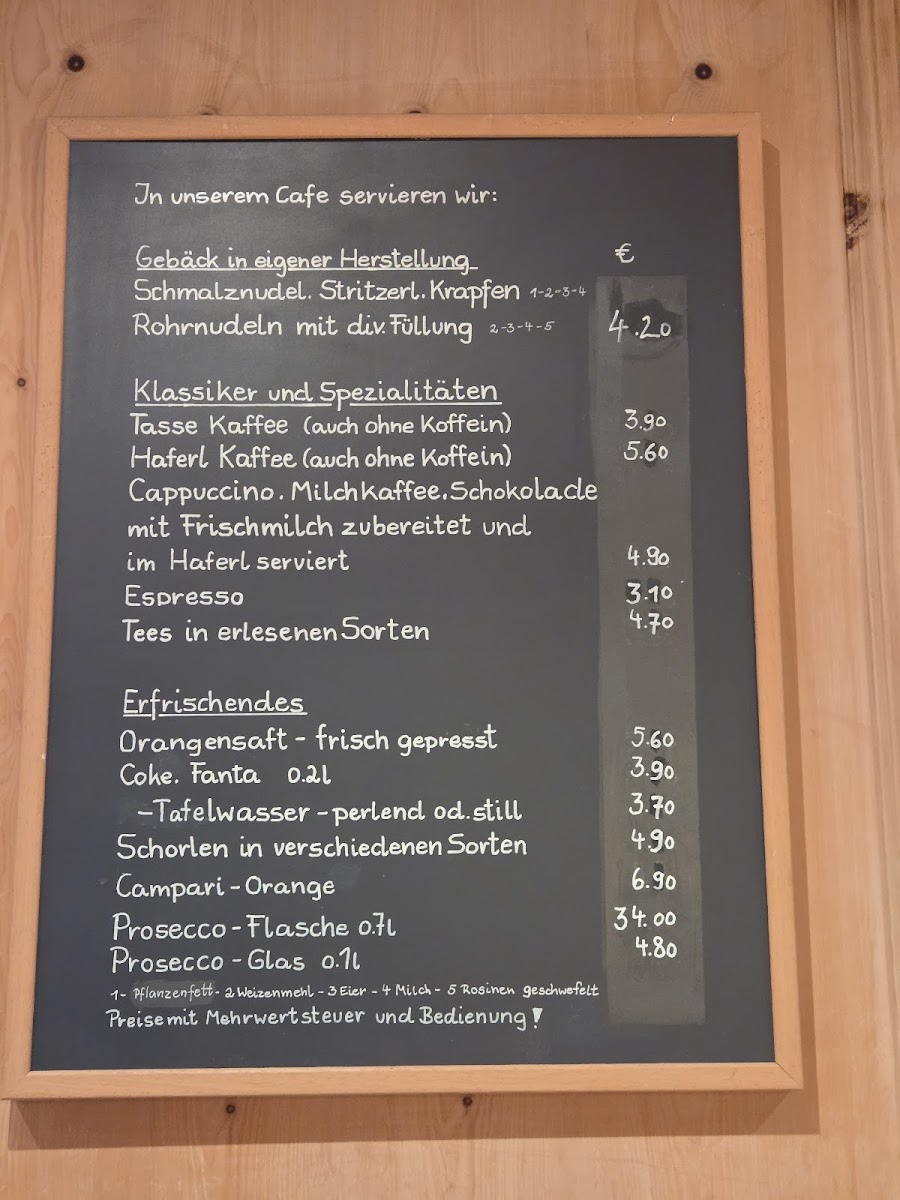 In unserem Cafe servieren wir:
Gebäck in eigener Herstellung €
Schmalznudel. Stritzerl. Krapfen 1-2-3-4
Rohrnudeln mit div. Füllung 2-3-4-5 4.20
Klassiker und Spezialitäten
Tasse Kaffee (auch ohne Koffein) 3.90
Haferl Kaffee (auch ohne Koffein) 5.60
Cappuccino. Milchkaffee. Schokolade
mit Frischmilch zubereitet und
im Haferl serviert 4.90
Espresso 3.10
Tees in erlesenen Sorten 4.70
Erfrischendes
Orangensaft - frisch gepresst 5.60
Coke. Fanta 0.2l 3.90
-Tafelwasser - perlend od. still 3.70
Schorlen in verschiedenen Sorten 4.90
Campari - Orange 6.90
Prosecco - Flasche 0.7l 34.00
Prosecco - Glas 0.1l 4.80
1- Pflanzenfett - 2 Weizenmehl - 3 Eier - 4 Milch - 5 Rosinen geschwefelt
Preise mit Mehrwertsteuer und Bedienung!